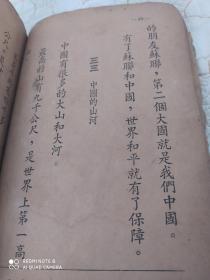 的朋友蘇聯，第二個大國就是我們中國。
有了蘇聯和中國，世界和平就有了保障。
三三 中國的山河
中國有很多的大山和大河。
最高的山有九千公尺，是世界上第一高
REDMI NOTE 8
AI QUAD CAMERA